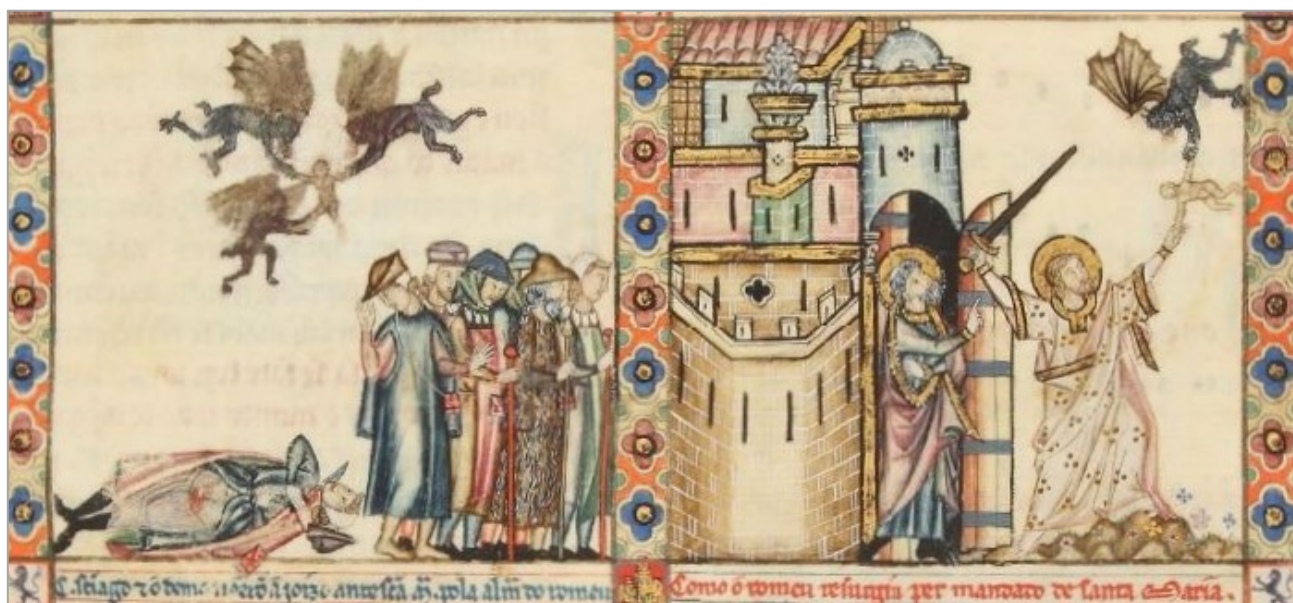 C. sãtiago ⁊ o demo a joizo ante scã m̃. pola alm̃ do romeu
Como o romeu resurgiu per mandado de santa Maria.